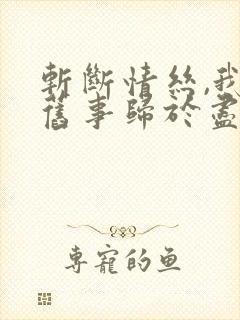 斬斷情絲,我
舊事歸於盡
專寵的魚